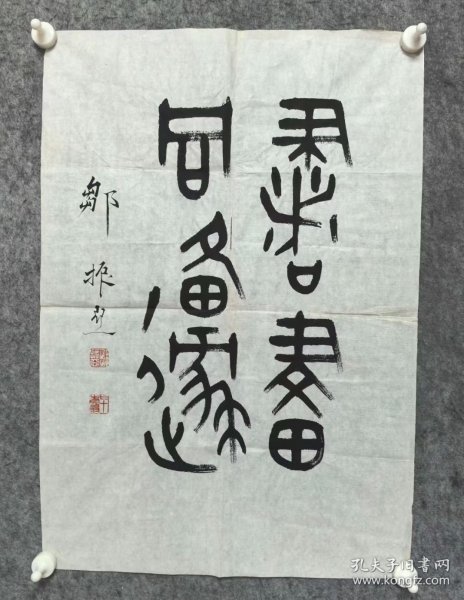 書畫
同邍
鄒振亞
孔夫子旧书网
www.kongfz.com